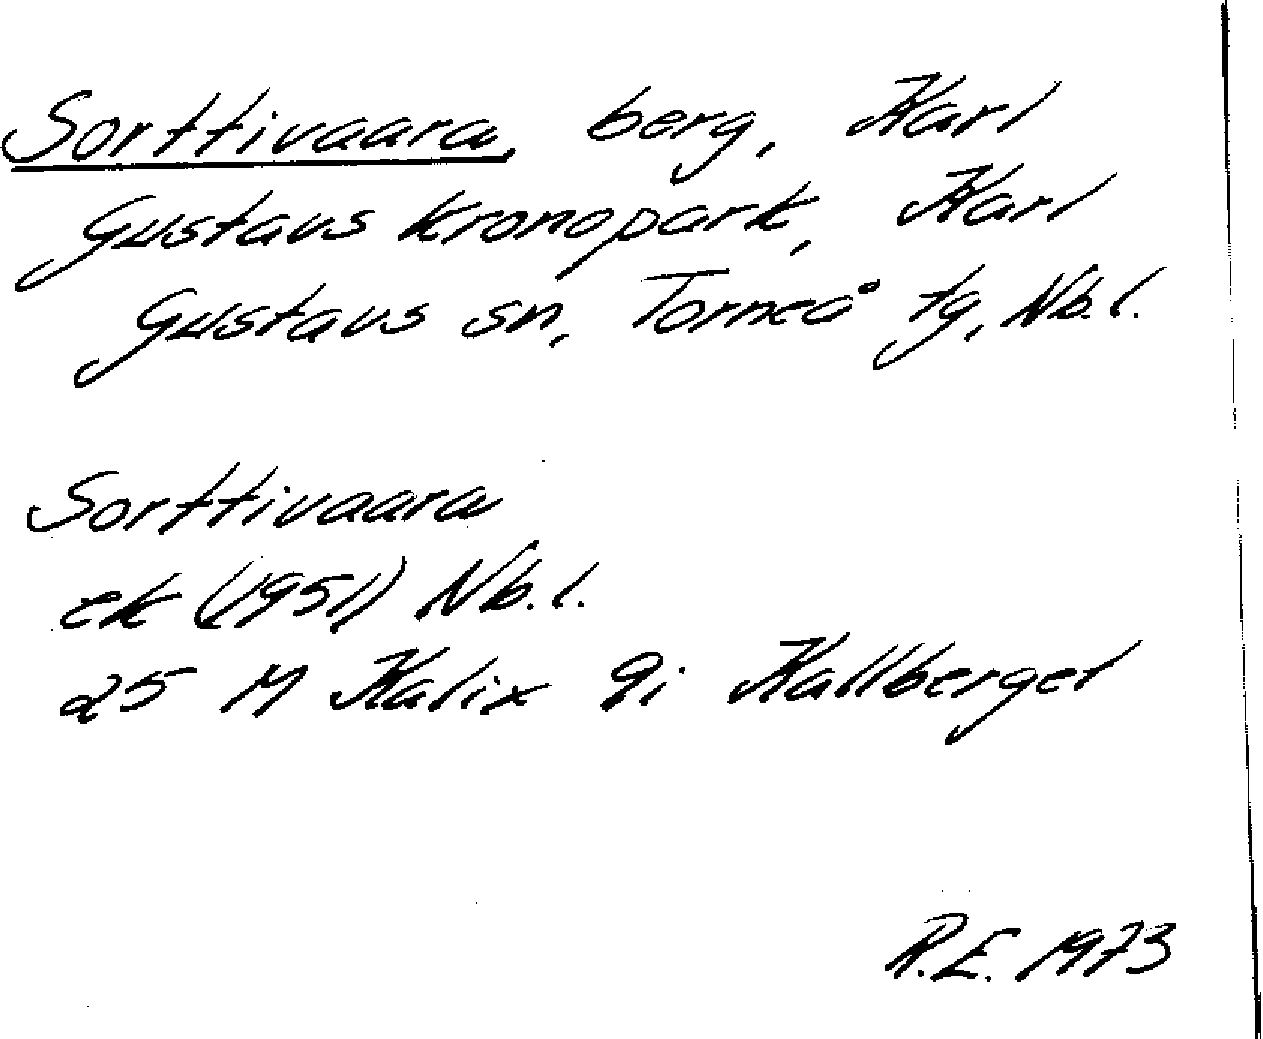 Sorttivaara, berg, Karl
Gustavs kronopark, Karl
Gustavs sn, Torneå tg, Nb.l.
Sorttivaara
ek (1951) Nb.l.
25 M Kalix 9i Kallberget
R.E. 1973